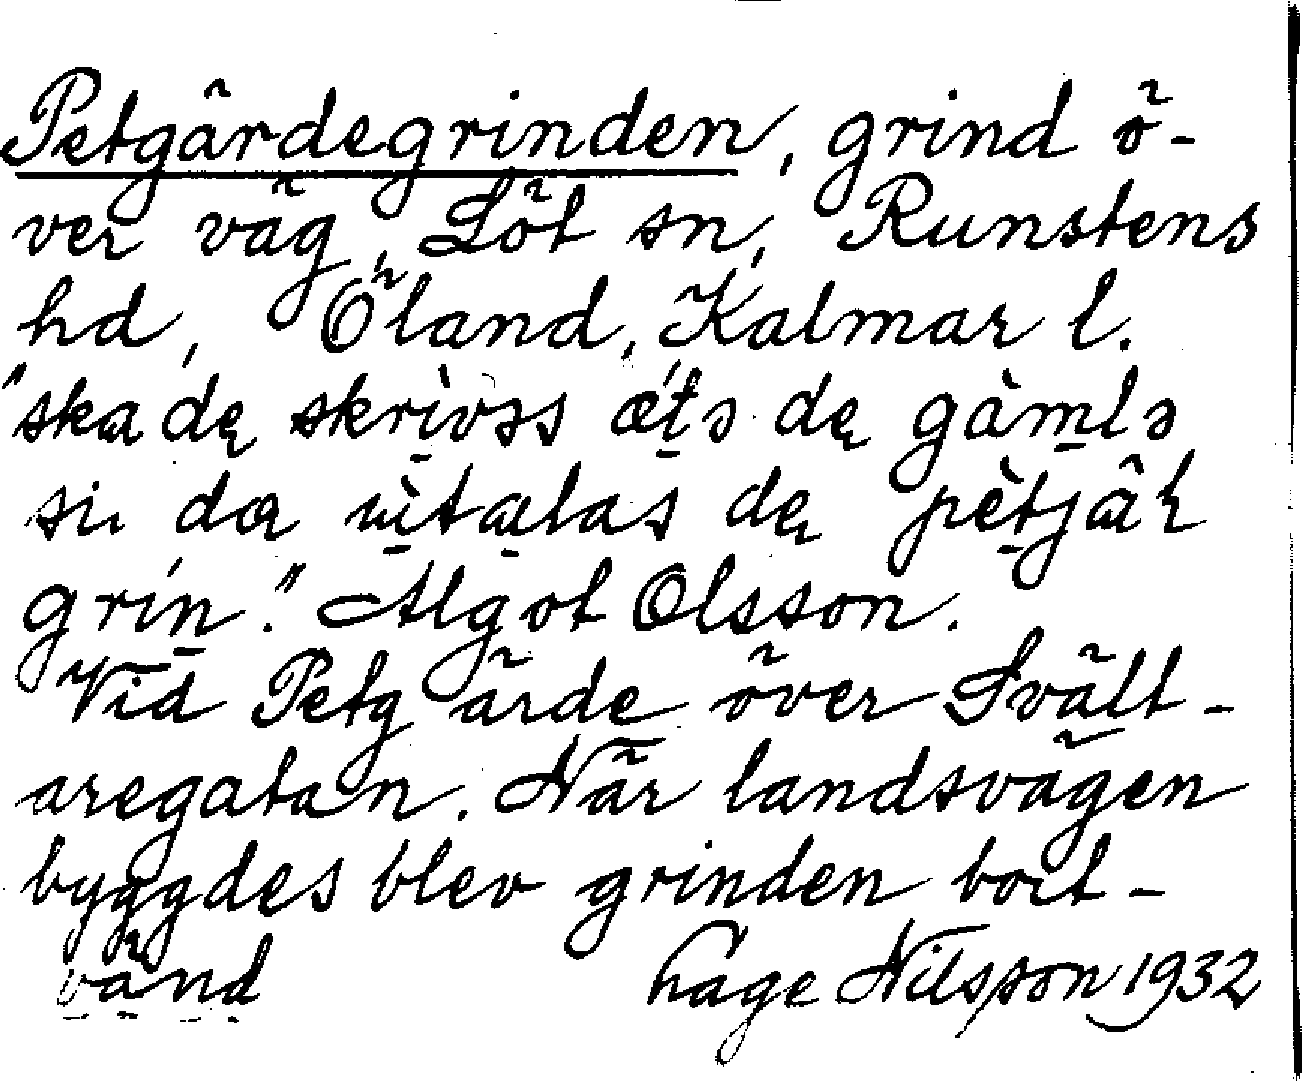 Petgärdegrinden, grind ö-
ver väg, Löt sn, Runstens
hd, Öland, Kalmar l.
"ska dę skrìvəs ætə dę gàmlə
su dɑ ùtalas dę pètjäɽ
grín." Algot Olsson.
Vid Petgärde över Svält-
aregatan. När landsvägen
byggdes blev grinden bort-
vänd Hage Nilsson 1932